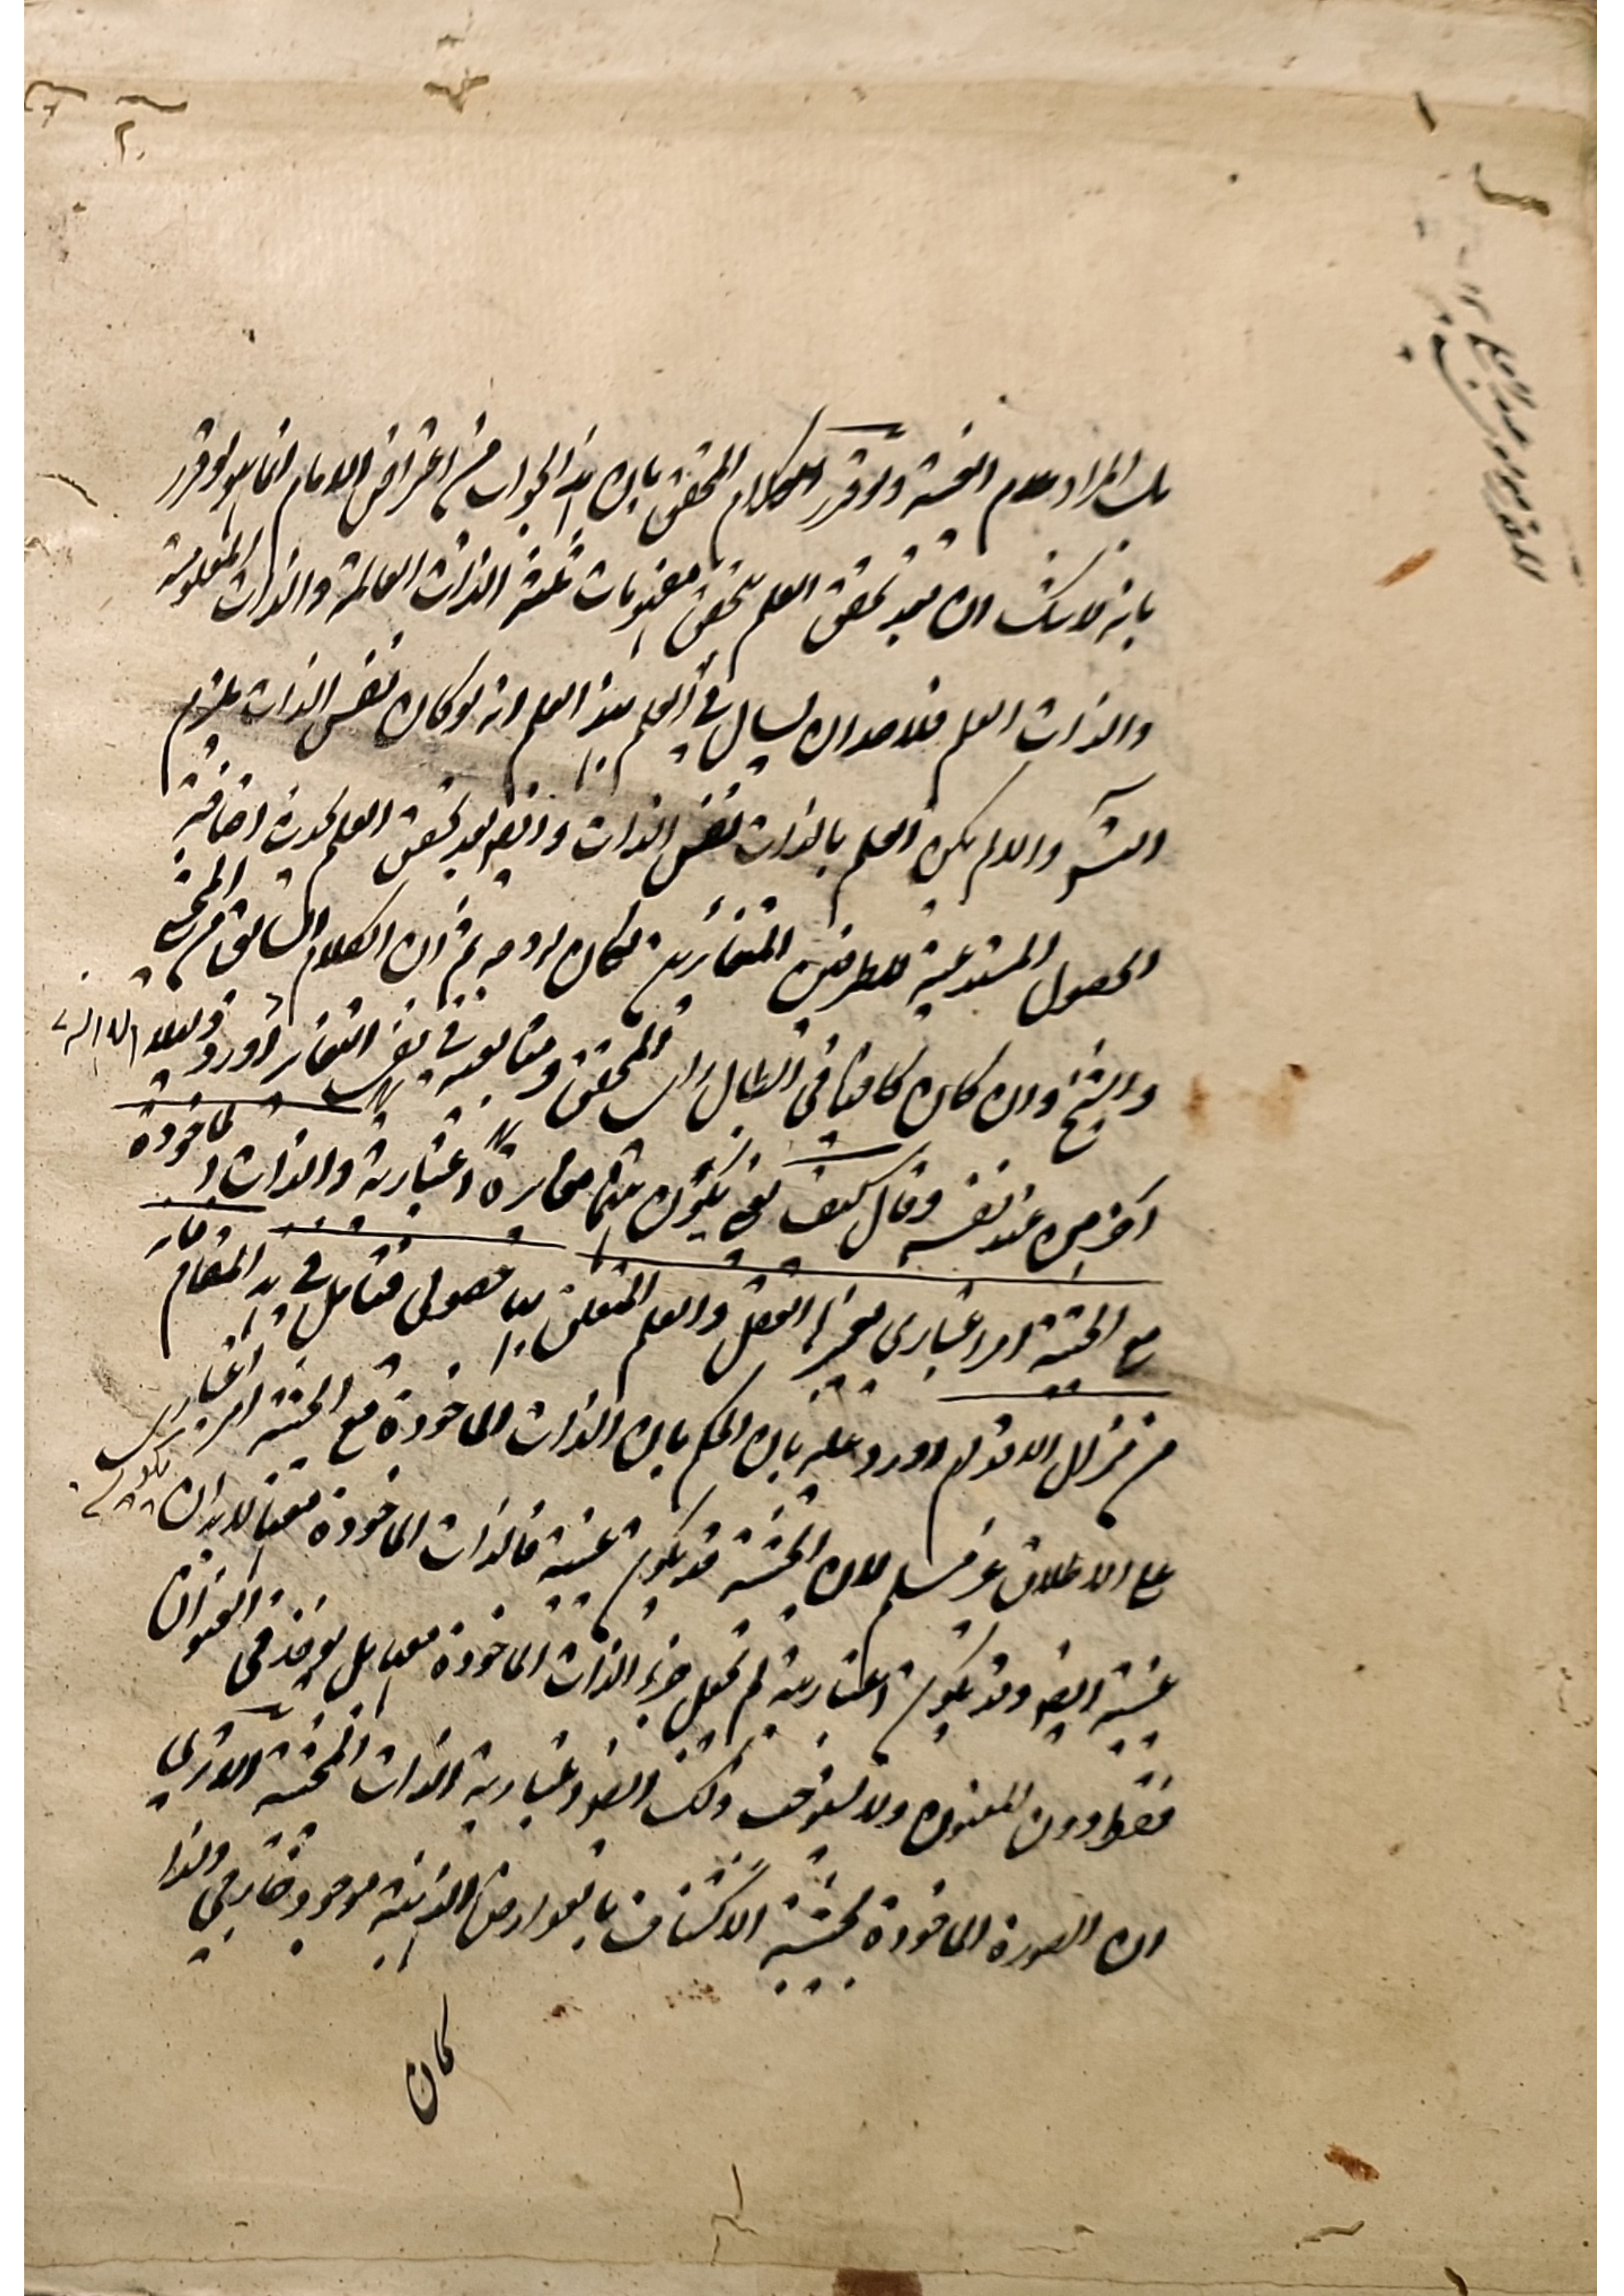 بل المراد عدم العينية ولو قرر الكلام المحقق بان هذا الجواب من اعتراض الامام انما هو لو قرر
بانه لا شك ان بعد تحقق العلم يتحقق مفهومات ثلثة الذات العالمة والذات المعلومة
والذات العلم فلاحد ان يسال في العلم بهذا العلم انه لو كان نفس الذات يلزم
والا لم يكن العلم بالذات نفس الذات وايضا بعد تحقق العلم يحدث اضافة
الحصول المستدعية للطرفين المتغائرين لكان له وجه ثم ان الكلام السابق من المحشي
والشيخ وان كان كافيا في ابطال راي المحقق ومتابعيه في نفس التغاير اورد دليلا
آخر من عند نفسه وقال كيف يعني يكون بينهما مغايرة اعتبارية والذات الماخوذة
مع الحيثية امر اعتباري العقل والعلم المتعلق بها حصولي فتامل في هذا المقام فانه
من مزال الاقدام اورد عليه بان الحكم بان الذات الماخوذة مع الحيثية امر اعتباري
على الاطلاق غير مسلم لان الحيثية قد يكون عينية فالذات الماخوذة معها لابد ان يكون
عينية ايضا وقد يكون اعتبارية لم تجعل جزء الذات الماخوذة معها بل يؤخذ في العنوان
فقط دون المعنون ولا يستوجب ذلك ايضا اعتبارية الذات المحيثة الا ترى
ان الصورة الماخوذة بحيثية الاكتناف بالعوارض الذهنية موجود خارجي ولذا
كان